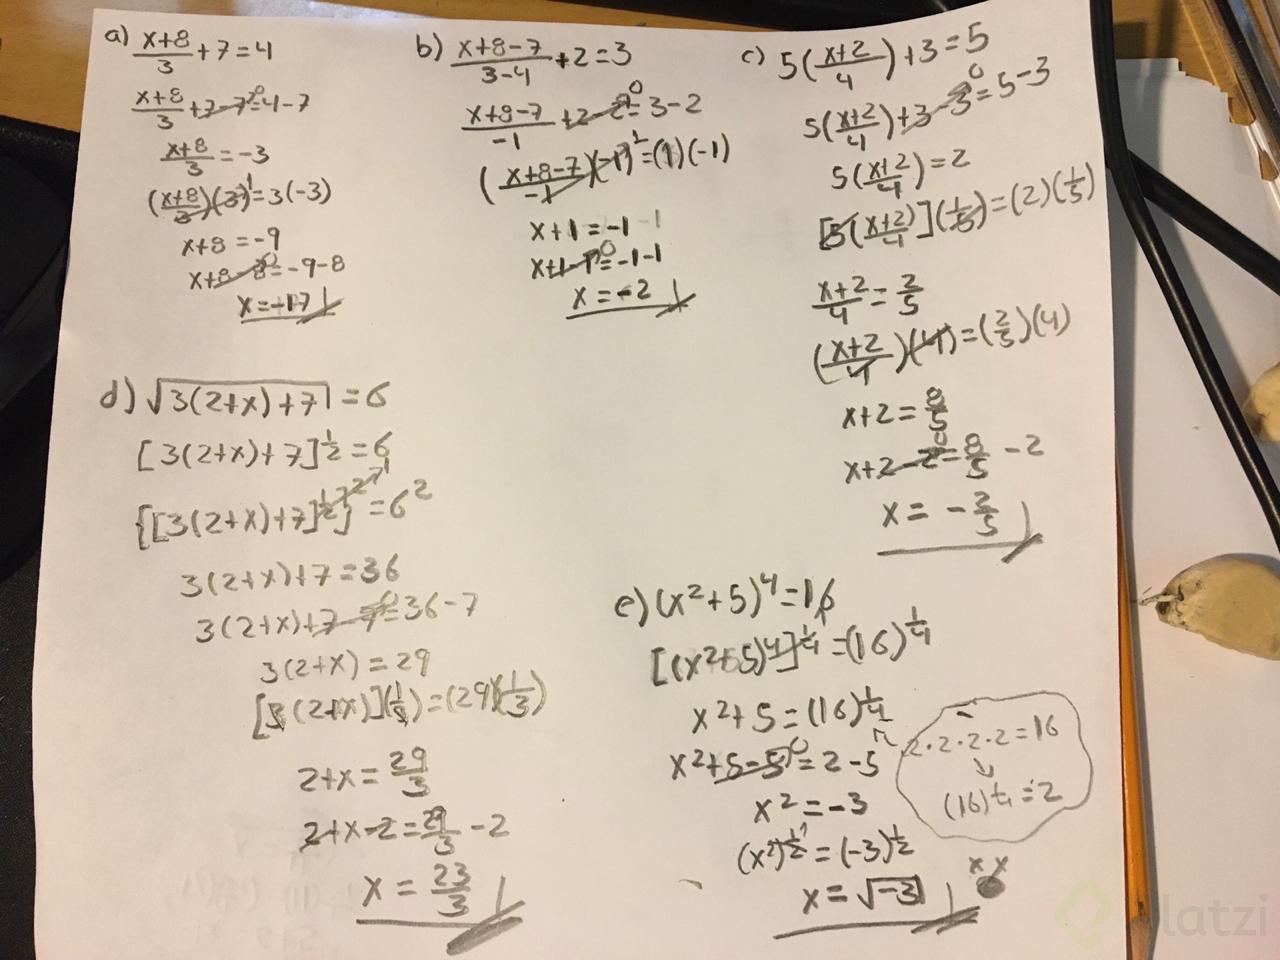 a) (x+8)/3 + 7 = 4
(x+8)/3 + 7 - 7⁰ = 4 - 7
(x+8)/3 = -3
((x+8)/3)(3)¹ = 3(-3)
x+8 = -9
x+8-8⁰ = -9-8
x = -17
b) (x+8-7)/(3-4) + 2 = 3
(x+8-7)/-1 + 2 - 2⁰ = 3 - 2
((x+8-7)/-1)(-1)¹ = (1)(-1)
x+1 = -1 -1
x+1-1⁰ = -1-1
x = -2
c) 5((x+2)/4) + 3 = 5
5((x+2)/4) + 3 - 3⁰ = 5 - 3
5((x+2)/4) = 2
[5((x+2)/4)](1/5) = (2)(1/5)
(x+2)/4 = 2/5
((x+2)/4)(4) = (2/5)(4)
x+2 = 8/5
x+2-2⁰ = 8/5 - 2
x = -2/5
d) √(3(2+x)+7) = 6
[3(2+x)+7]^(1/2) = 6
{[3(2+x)+7]^(1/2)}^2 ↗ 1 = 6²
3(2+x)+7 = 36
3(2+x)+7-7⁰ = 36-7
3(2+x) = 29
[3(2+x)](1/3) = (29)(1/3)
2+x = 29/3
2+x-2 = 29/3 - 2
x = 23/3
e) (x²+5)⁴ = 16
[(x²+5)⁴]^(1/4) = (16)^(1/4)
x²+5 = (16)^(1/4)
x²+5-5⁰ = 2-5
x² = -3
(x²)^(1/2) = (-3)^(1/2)
x = √-3
2·2·2·2 = 16
(16)^(1/4) = 2
x x
latzi